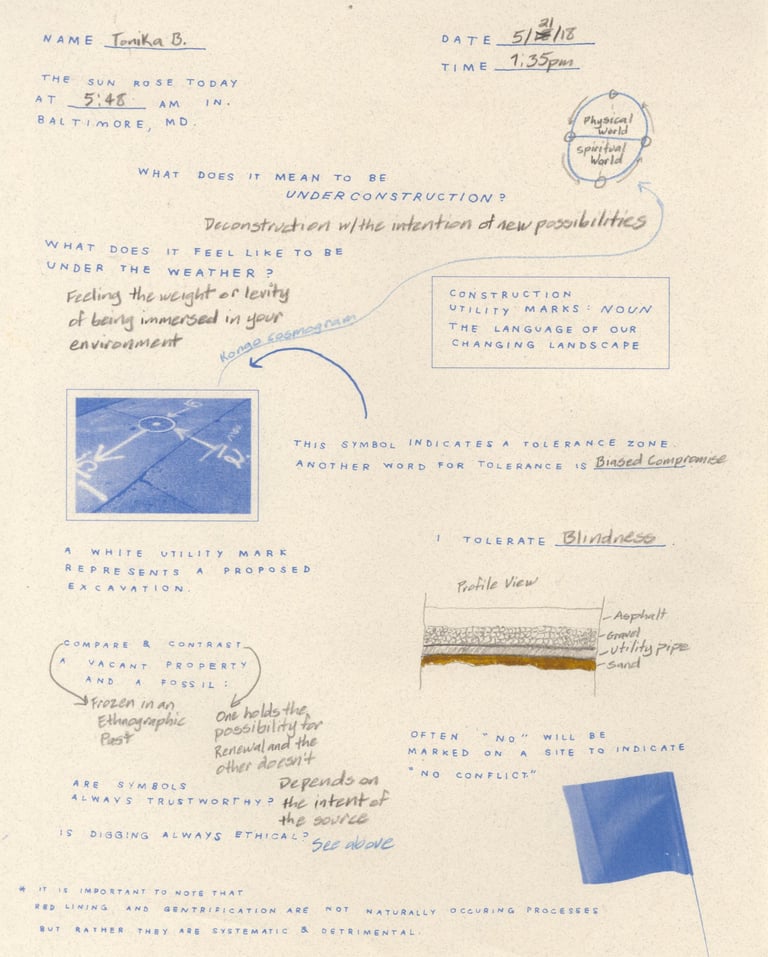 NAME Tonika B.
DATE 5/21/18
TIME 1:35pm
THE SUN ROSE TODAY
AT 5:48 AM IN.
BALTIMORE, MD.
Physical
World
spiritual
World
WHAT DOES IT MEAN TO BE
UNDER CONSTRUCTION?
Deconstruction w/the intention of new possibilities
WHAT DOES IT FEEL LIKE TO BE
UNDER THE WEATHER?
Feeling the weight or levity
of being immersed in your
environment
Kongo Cosmogram
CONSTRUCTION
UTILITY MARKS: NOUN
THE LANGUAGE OF OUR
CHANGING LANDSCAPE
THIS SYMBOL INDICATES A TOLERANCE ZONE.
ANOTHER WORD FOR TOLERANCE IS Biased Compromise
A WHITE UTILITY MARK
REPRESENTS A PROPOSED
EXCAVATION.
I TOLERATE Blindness.
Profile View
Asphalt
Gravel
Utility pipe
Sand
COMPARE & CONTRAST
A VACANT PROPERTY
AND A FOSSIL:
Frozen in an
Ethnographic
Past
One holds the
possibility for
Renewal and the
other doesn't
OFTEN "NO" WILL BE
MARKED ON A SITE TO INDICATE
"NO CONFLICT."
ARE SYMBOLS
ALWAYS TRUSTWORTHY?
Depends on
the intent of
the source
IS DIGGING ALWAYS ETHICAL? See above
* IT IS IMPORTANT TO NOTE THAT
RED LINING AND GENTRIFICATION ARE NOT NATURALLY OCCURING PROCESSES
BUT RATHER THEY ARE SYSTEMATIC & DETRIMENTAL.